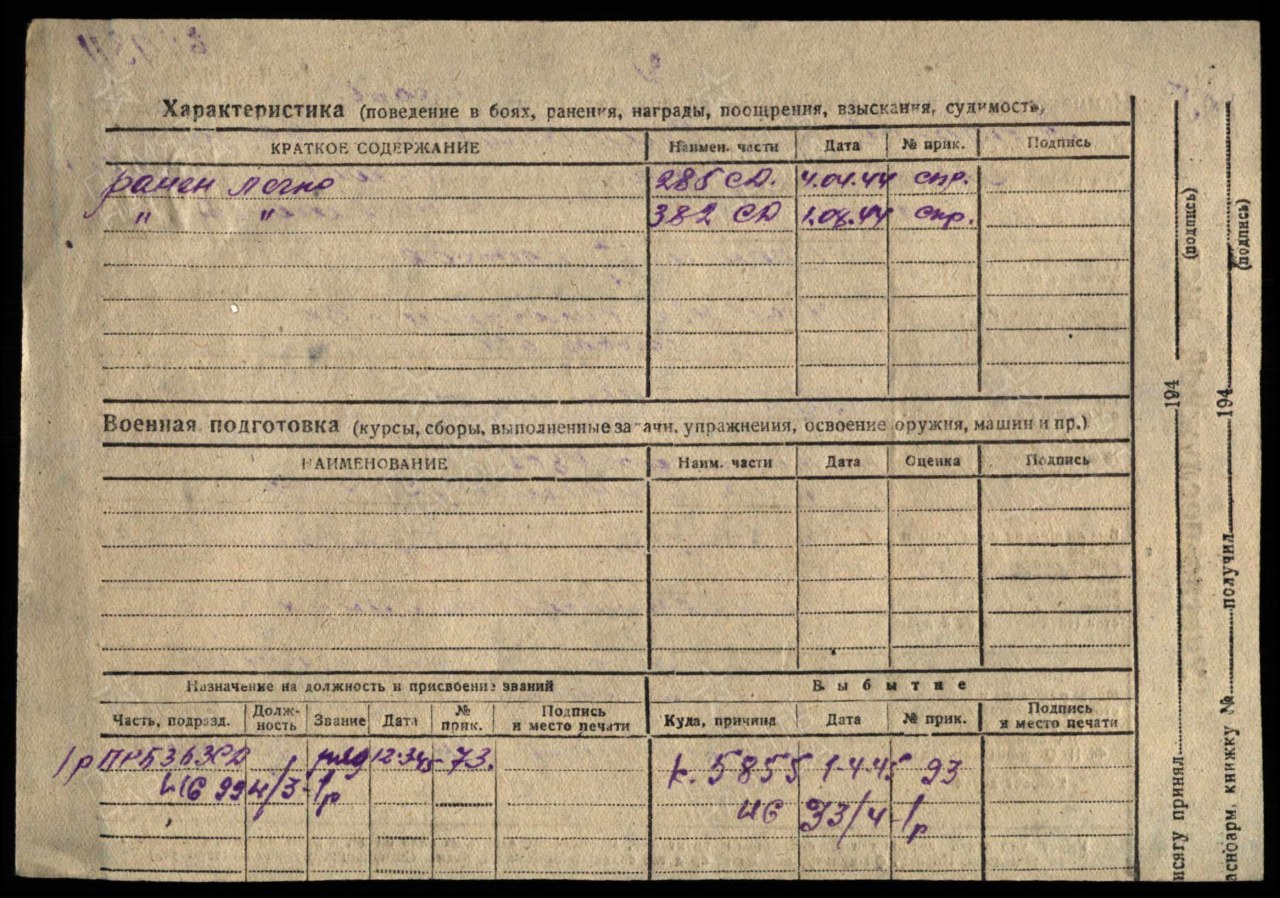 Характеристика (поведение в боях, ранения, награды, поощрения, взыскания, судимость,
КРАТКОЕ СОДЕРЖАНИЕ Наимен. части Дата № прик. Подпись
ранен легко 285 СД. 4.04.44 спр.
" " 382 СД 1.08.44 спр.
Военная подготовка (курсы, сборы, выполненные задачи, упражнения, освоение оружия, машин и пр.)
НАИМЕНОВАНИЕ Наим. части Дата Оценка Подпись
Назначение на должность и присвоение званий Выбытие
Часть, подразд. Долж-ность Звание Дата № прик. Подпись и место печати Куда, причина Дата № прик. Подпись и место печати
1р ПРБ 363 СД ряд 12-3-45 73. к. 5855 1-4-45 93
4/3-1р 33/4-1р
исягу принял 194 (подпись)
асноарм. книжку № получил 194 (подпись)